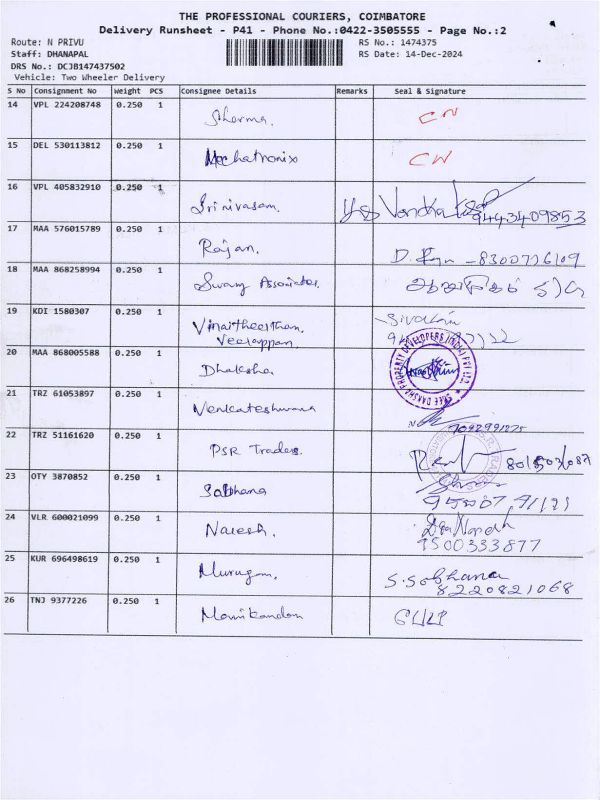 THE PROFESSIONAL COURIERS, COIMBATORE
Delivery Runsheet - P41 - Phone No.:0422-3505555 - Page No.:2
Route: N PRIVU RS No.: 1474375
Staff: DHANAPAL RS Date: 14-Dec-2024
DRS No.: DCJB147437502
Vehicle: Two Wheeler Delivery
S No Consignment No Weight PCS Consignee Details Remarks Seal & Signature
14 VPL 224208748 0.250 1 Sharma. CN
15 DEL 530113812 0.250 1 Mechatronix CN
16 VPL 405832910 0.250 1 Srinivasan. 9443409853
17 MAA 576015789 0.250 1 Rajan. D. -8300776109
18 MAA 868258994 0.250 1 Swamy Associates.
19 KDI 1580307 0.250 1 Vinaitheerthan. -Sivakami
Veerappan.
20 MAA 868005588 0.250 1 Dhaksha SHREE DAKSHA PROPERTY DEVELOPERS (INDIA) PVT LTD.
21 TRZ 61053897 0.250 1 Venkateshwara 7092991275
22 TRZ 51161620 0.250 1 PSR Traders.
23 OTY 3870852 0.250 1 Sobhana
24 VLR 600021099 0.250 1 Naresh.
9500333877
25 KUR 696498619 0.250 1 Murugan. S. Sobhana
8220821068
26 TNJ 9377226 0.250 1 Manikandan